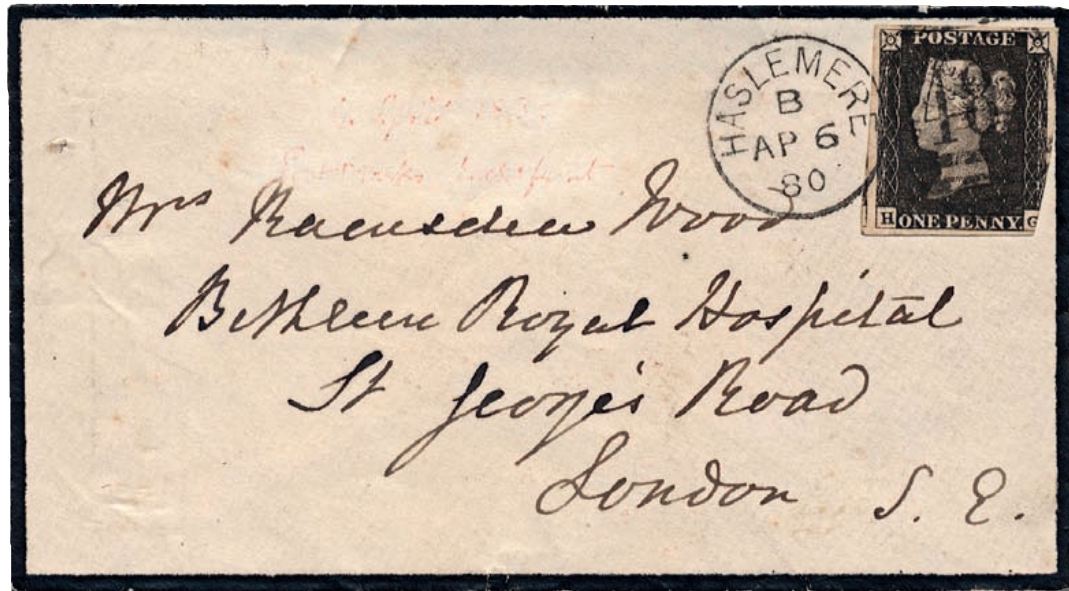 HASLEMERE
B
AP 6
80
POSTAGE
H ONE PENNY. G
Mrs Wood
Bethlem Royal Hospital
St George's Road
London S. E.